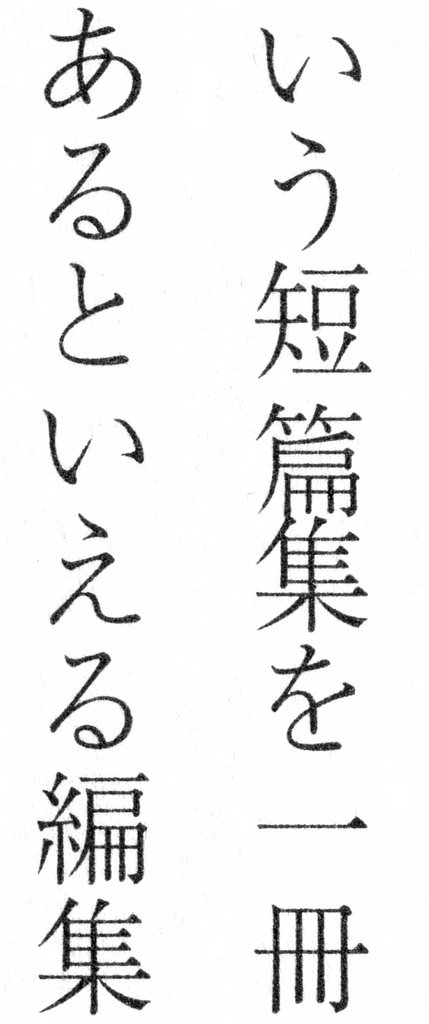 いう短篇集を一冊
あるといえる編集